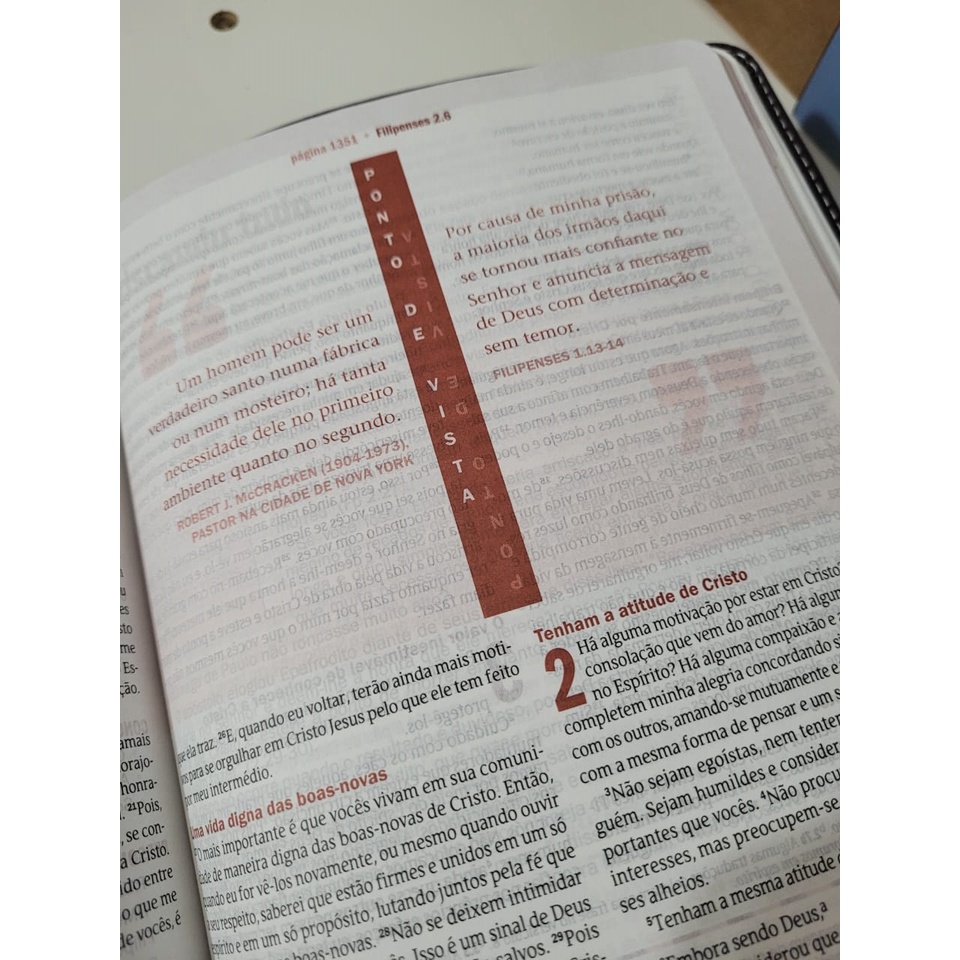 página 1351 • Filipenses 2.6
PONTO DE VISTA
Um homem pode ser um
verdadeiro santo numa fábrica
ou num mosteiro; há tanta
necessidade dele no primeiro
ambiente quanto no segundo.
ROBERT J. McCRACKEN (1904-1973),
PASTOR NA CIDADE DE NOVA YORK
Por causa de minha prisão,
a maioria dos irmãos daqui
se tornou mais confiante no
Senhor e anuncia a mensagem
de Deus com determinação e
sem temor.
FILIPENSES 1.13-14
que ela traz. ²⁶E, quando eu voltar, terão ainda mais moti-
vos para se orgulhar em Cristo Jesus pelo que ele tem feito
por meu intermédio.
Uma vida digna das boas-novas
²⁷O mais importante é que vocês vivam em sua comuni-
dade de maneira digna das boas-novas de Cristo. Então,
quando eu for vê-los novamente, ou mesmo quando ouvir
a seu respeito, saberei que estão firmes e unidos em um só
espírito e em um só propósito, lutando juntos pela fé que
boas-novas. ²⁸Não se deixem intimidar
Isso é um sinal de Deus
salvos. ²⁹Pois
Tenham a atitude de Cristo
2 Há alguma motivação por estar em Cristo?
consolação que vem do amor? Há algum
no Espírito? Há alguma compaixão e
completem minha alegria concordando
com os outros, amando-se mutuamente e
com a mesma forma de pensar e um s
³Não sejam egoístas, nem tentem
guém. Sejam humildes e consider
portantes que vocês. ⁴Não procu
interesses, mas preocupem-se
ses alheios.
⁵Tenham a mesma atitude
⁶Embora sendo Deus,ᵃ
iderou que
sto
me
Es-
ção.
amais
orajo-
honra-
²¹Pois,
, se con-
a Cristo.
ido entre
o que me
de vocês, é